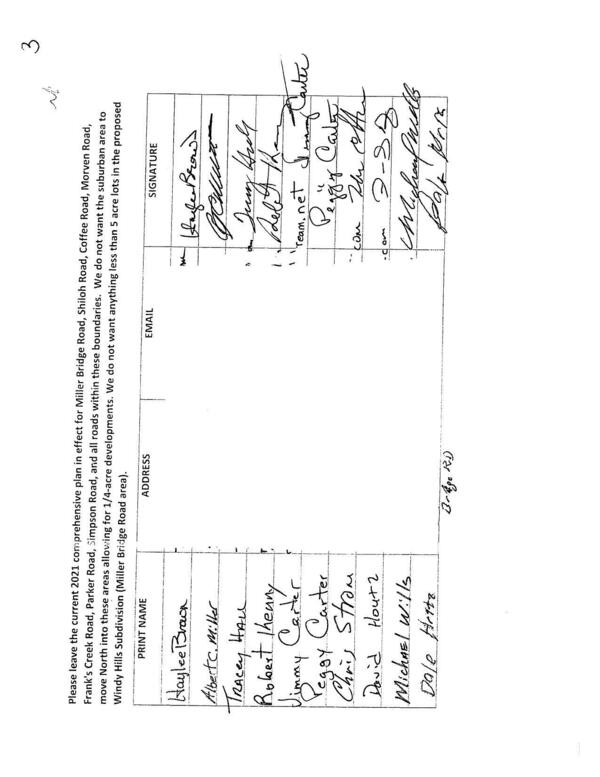 3
Please leave the current 2021 comprehensive plan in effect for Miller Bridge Road, Shiloh Road, Coffee Road, Morven Road,
Frank's Creek Road, Parker Road, Simpson Road, and all roads within these boundaries. We do not want the suburban area to
move North into these areas allowing for 1/4-acre developments. We do not want anything less than 5 acre lots in the proposed
Windy Hills Subdivision (Miller Bridge Road area).
PRINT NAME ADDRESS EMAIL SIGNATURE
Haylee Brown Haylee Brown
Albert C. Miller
Tracey Hall
Robert Kenny
Jimmy Carter team.net Jimmy Carter
Peggy Carter Peggy Carter
Chris Strom .com
David Houtz .com
Michael Wills Michael Wills
Dale Bridge RD Dale